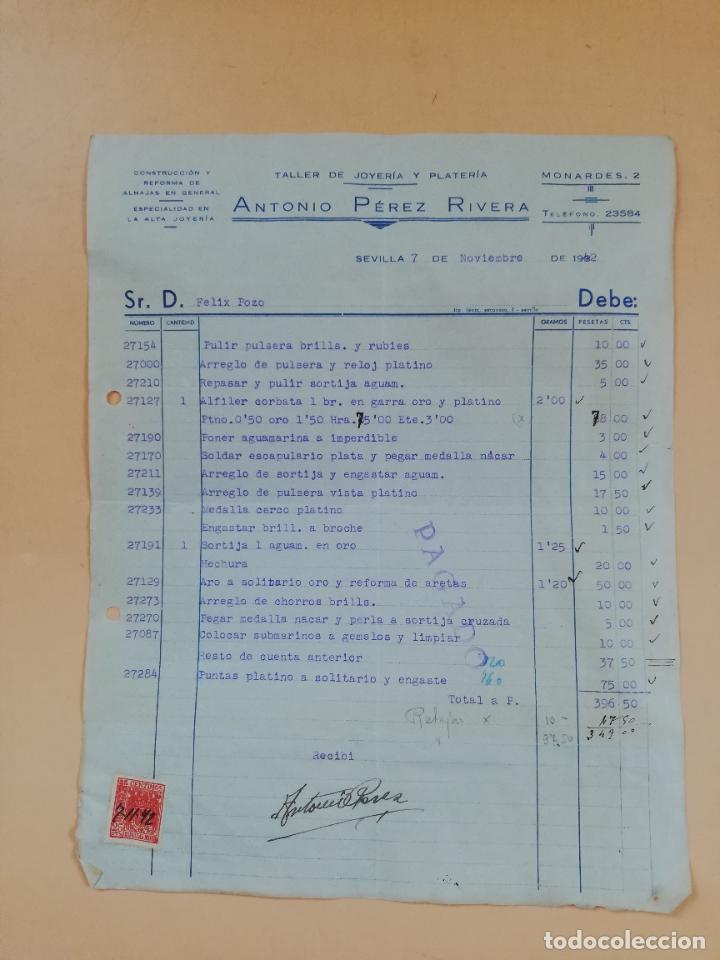 CONSTRUCCIÓN Y
REFORMA DE
ALHAJAS EN GENERAL
ESPECIALIDAD EN
LA ALTA JOYERÍA
TALLER DE JOYERÍA Y PLATERÍA
ANTONIO PÉREZ RIVERA
MONARDES. 2
TELÉFONO. 23584
SEVILLA 7 DE Noviembre DE 1942
Sr. D. Felix Pozo Debe:
NÚMERO CANTIDAD GRAMOS PESETAS CTS.
27154 Pulir pulsera brills. y rubies 10 00
27000 Arreglo de pulsera y reloj platino 35 00
27210 Repasar y pulir sortija aguam. 5 00
27127 1 Alfiler corbata 1 br. en garra oro y platino 2'00
Ptno.0'50 oro 1'50 Hra.75'00 Ete.3'00 (x 78 00
27190 Poner aguamarina a imperdible 3 00
27170 Soldar escapulario plata y pegar medalla nácar 4 00
27211 Arreglo de sortija y engastar aguam. 15 00
27139 Arreglo de pulsera vista platino 17 50
27233 Medalla cerco platino 10 00
Engastar brill. a broche 1 50
27191 1 Sortija 1 aguam. en oro 1'25
Hechura 20 00
27129 Aro a solitario oro y reforma de aretes 1'20 50 00
27273 Arreglo de chorros brills. 10 00
27270 Pegar medalla nacar y perla a sortija cruzada 5 00
27087 Colocar submarinos a gemelos y limpiar 10 00
Resto de cuenta anterior 37 50
27284 Puntas platino a solitario y engaste 75 00
PAGADO
Total a P. 396 50
Rebajar x 10 -
37.50
349 00
Recibi
Antonio Perez
CENTIMOS
7-11-42
todocoleccion.net